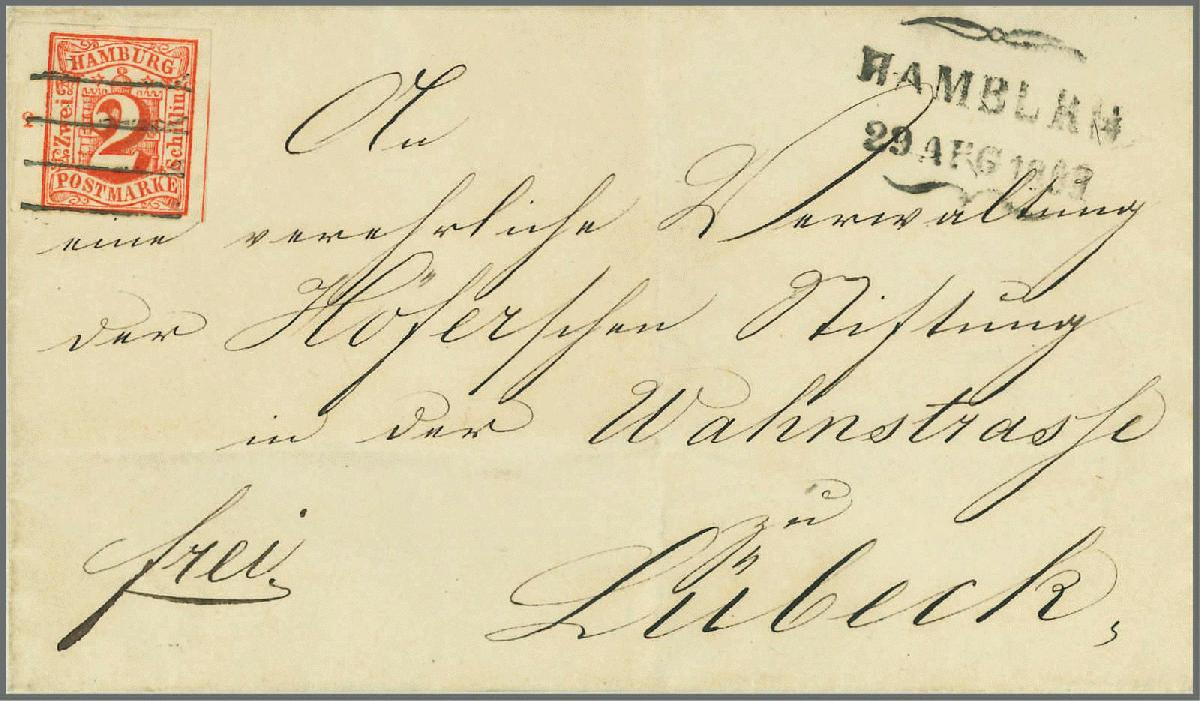 HAMBURG
Zwei
2
Schilling
POSTMARKE
HAMBURG
29 AUG
An
eine verehrliche Verwaltung
der Höferschen Stiftung
in der Wahnstrasse
zu
frei.
Lübeck,